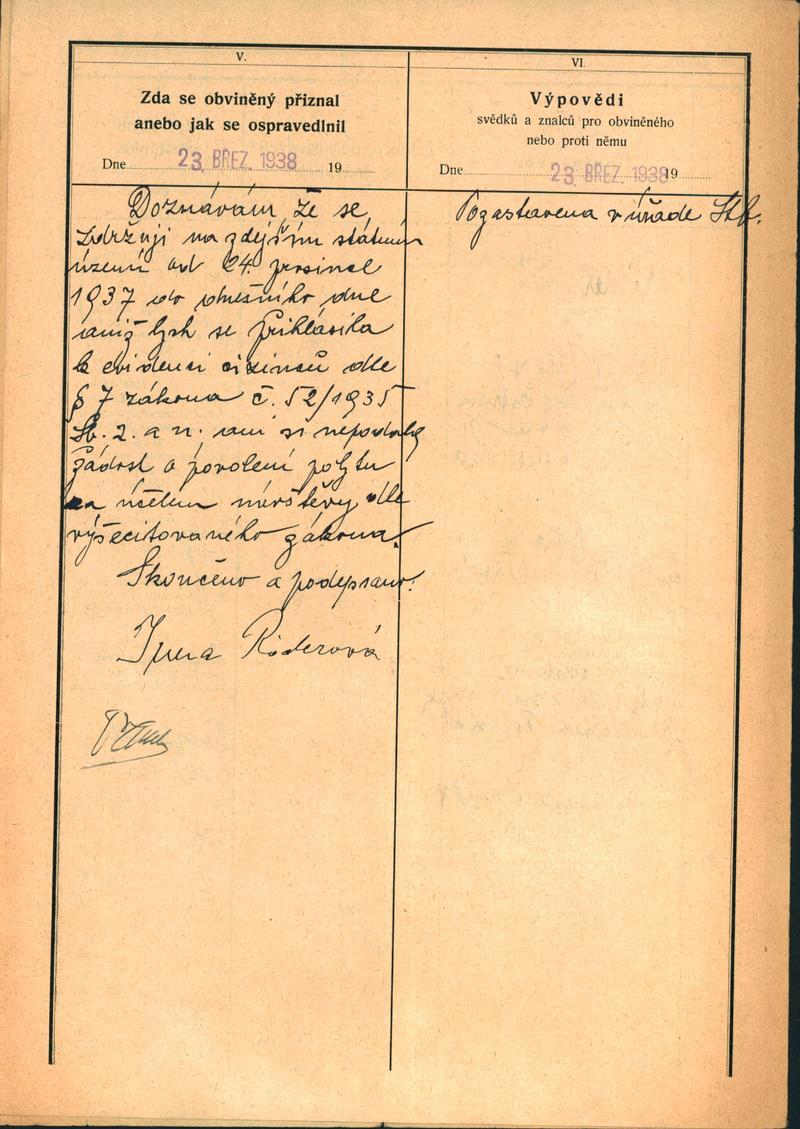 V.
Zda se obviněný přiznal
anebo jak se ospravedlnil
Dne 23. BŘEZ. 1938 19
Doznávám, že se
zdržuji na zdejším státním
území od 24. prosince
1937 do dnešního dne
aniž bych se přihlásila
k evidenci cizinců dle
§ 7 zákona č. 52/1935
Sb. z. a n. ani si nepodala
žádost o povolení pobytu
za účelem návštěvy dle
výšecitovaného zákona.
Skončeno a podepsáno:
Röderová
VI.
Výpovědi
svědků a znalců pro obviněného
nebo proti němu
Dne 23. BŘEZ. 1938 19
Pozastavena v úřadě